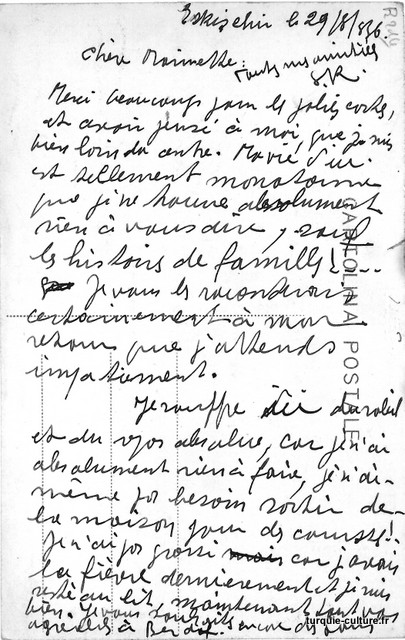 Eskişehir le 29/8/936
Chère Moinette:
Toutes mes amitiés
S.R.
Merci beaucoup pour les jolies cartes,
et avoir pensé à moi, que je suis
bien loin du centre. Ma vie d'ici
est tellement monotonne
que je ne trouve absolument
rien à vous dire, sauf
les histoirs de famills!...
Je vous les raconterai
certainement à mon
retour que j'attends
impatiement.
Je souffre ici du soleil
et du repos absolue, car je n'ai
absolument rien à faire, je n'ai
même pas besoin sortir de
la maison pour des courses!!
Je n'ai pas grossi mais car j'avais
la fièvre dernierement et je suis
resté au lit, maintenant tout va
bien. Je vous souhaits encore des jours
agreables à
CARTOLINA POSTALE
Rally
turquie-culture.fr